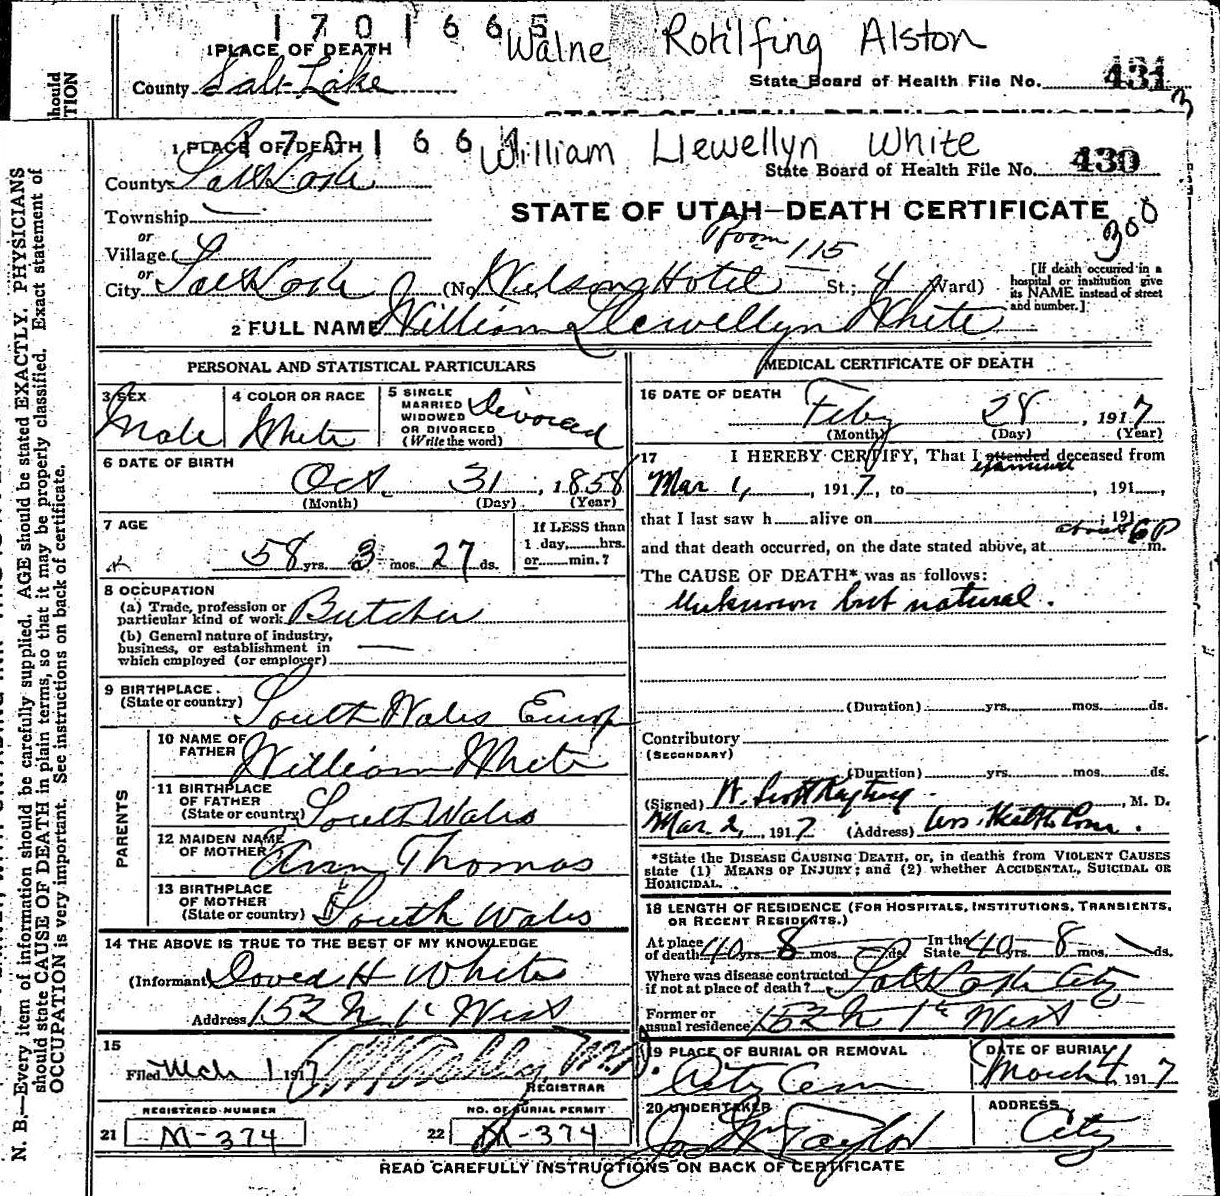 1701665
Walne Rohlfing Alston
1 PLACE OF DEATH
County Salt Lake
State Board of Health File No. 431
hould
TION
170166
William Llewellyn White
1 PLACE OF DEATH
County Salt Lake
State Board of Health File No. 430
Township
STATE OF UTAH—DEATH CERTIFICATE
300
or
Village
Room 115
or
City Salt Lake (No. Wilson Hotel St.; 4 Ward)
[If death occurred in a
hospital or institution give
its NAME instead of street
and number.]
2 FULL NAME William Llewellyn White
PERSONAL AND STATISTICAL PARTICULARS
3 SEX
Male
4 COLOR OR RACE
White
5 SINGLE
MARRIED
WIDOWED
OR DIVORCED
(Write the word)
Divorced
6 DATE OF BIRTH
Oct. 31, 1858
(Month) (Day) (Year)
7 AGE
58 yrs. 3 mos. 27 ds.
If LESS than
1 day, hrs.
or min.?
8 OCCUPATION
(a) Trade, profession or
particular kind of work Butcher
(b) General nature of industry,
business, or establishment in
which employed (or employer)
9 BIRTHPLACE
(State or country) South Wales Europ
PARENTS
10 NAME OF
FATHER William White
11 BIRTHPLACE
OF FATHER
(State or country) South Wales
12 MAIDEN NAME
OF MOTHER Ann Thomas
13 BIRTHPLACE
OF MOTHER
(State or country) South Wales
14 THE ABOVE IS TRUE TO THE BEST OF MY KNOWLEDGE
(Informant) David H White
Address 152 N 1st West
15
Filed Mch 1 1917
M.D.
REGISTRAR
REGISTERED NUMBER
21 M-374
NO. OF BURIAL PERMIT
22 M-374
MEDICAL CERTIFICATE OF DEATH
16 DATE OF DEATH
Feby 28, 1917
(Month) (Day) (Year)
17 I HEREBY CERTIFY, That I attended examined deceased from
Mar 1, 1917, to , 191 ,
that I last saw h alive on , 191
and that death occurred, on the date stated above, at about 6 P m.
The CAUSE OF DEATH* was as follows:
Unknown but natural.
(Duration) yrs. mos. ds.
Contributory
(SECONDARY)
(Duration) yrs. mos. ds.
(Signed) W. Scott , M. D.
Mar 2, 1917 (Address) Health Com.
*State the DISEASE CAUSING DEATH, or, in deaths from VIOLENT CAUSES
state (1) MEANS OF INJURY; and (2) whether ACCIDENTAL, SUICIDAL OR
HOMICIDAL.
18 LENGTH OF RESIDENCE (FOR HOSPITALS, INSTITUTIONS, TRANSIENTS,
OR RECENT RESIDENTS.)
At place
of death 40 yrs. 8 mos. ds. In the
State 40 yrs. 8 mos. ds.
Where was disease contracted
if not at place of death? Salt Lake City
Former or
usual residence 152 N 1st West
19 PLACE OF BURIAL OR REMOVAL
City Cem
DATE OF BURIAL
March 4 1917
20 UNDERTAKER
Jos Wm Taylor
ADDRESS
City
READ CAREFULLY INSTRUCTIONS ON BACK OF CERTIFICATE
N. B.—Every item of information should be carefully supplied. AGE should be stated EXACTLY. PHYSICIANS
should state CAUSE OF DEATH in plain terms, so that it may be properly classified. Exact statement of
OCCUPATION is very important. See instructions on back of certificate.